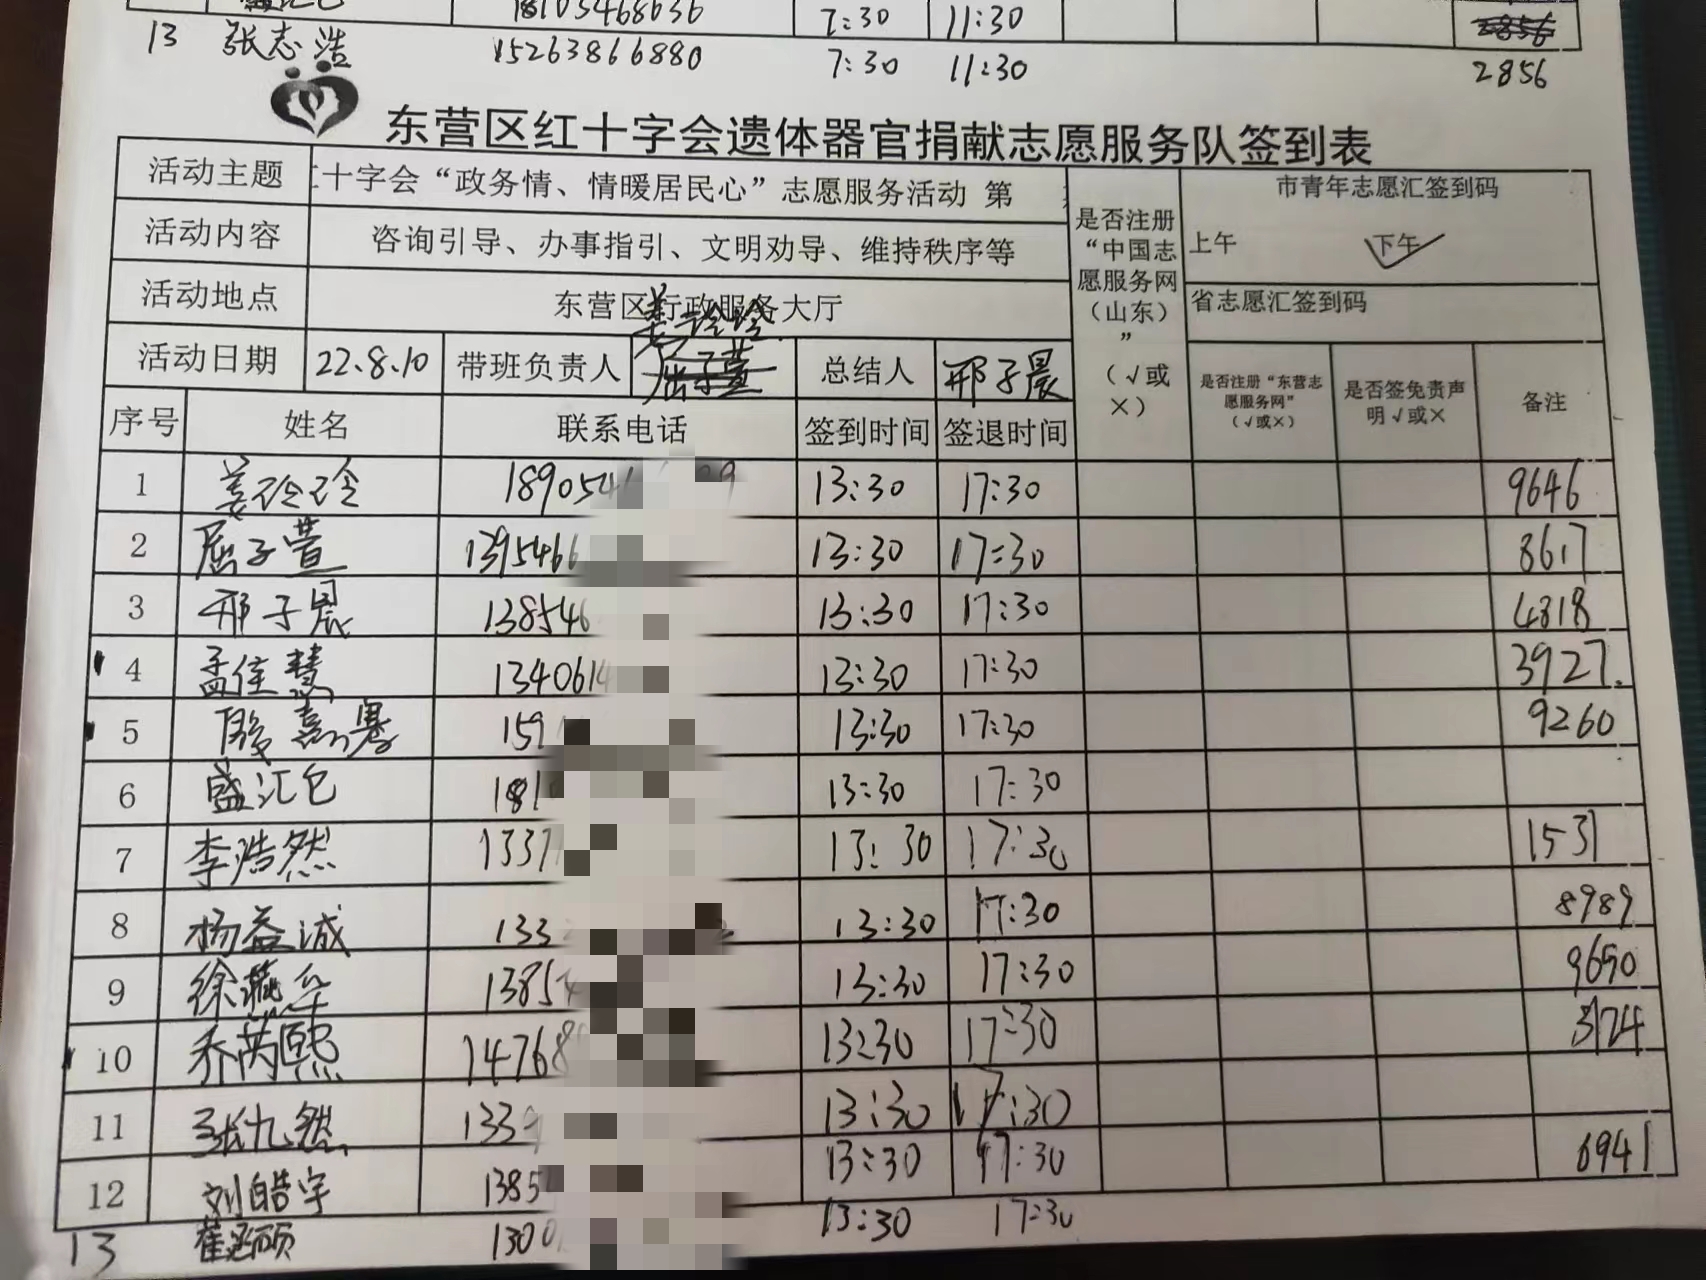 18105468636 7:30 11:30
13 张志浩 15263866880 7:30 11:30 2856
东营区红十字会遗体器官捐献志愿服务队签到表
活动主题 十字会“政务情、情暖居民心”志愿服务活动 第
是否注册“中国志愿服务网（山东）”（√或×）
市青年志愿汇签到码
上午 下午
活动内容 咨询引导、办事指引、文明劝导、维持秩序等
活动地点 东营区行政服务大厅
省志愿汇签到码
姜玲玲
活动日期 22.8.10 带班负责人 屈子萱 总结人 邢子晨
是否注册“东营志愿服务网”（√或×） 是否签免责声明√或× 备注
序号 姓名 联系电话 签到时间 签退时间
1 姜玲玲 1890546 99 13:30 17:30 9646
2 屈子萱 1395466 13:30 17:30 8617
3 邢子晨 138546 13:30 17:30 4818
4 孟佳慧 1340614 13:30 17:30 3927.
5 159 13:30 17:30 9260
6 盛汇包 181 13:30 17:30
7 李浩然 1337 13:30 17:30 1531
8 杨益诚 133 13:30 17:30 8989
9 徐燕华 13854 13:30 17:30 9690
10 乔芮熙 14768 13:30 17:30 3174
11 张九然 133 13:30 17:30
12 刘皓宇 1385 13:30 17:30 6941
13 130 13:30 17:30